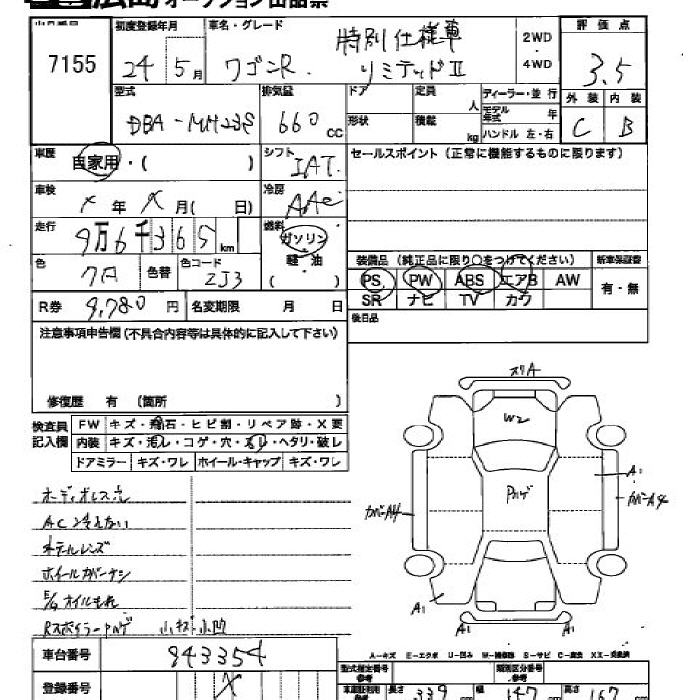 広島 オークション出品票
出品番号 7155
初度登録年月 24年 5月
車名・グレード ワゴンR. 特別仕様車 リミテッドII
2WD・4WD
評価点 3.5
外装 C 内装 B
型式 DBA-MH23S
排気量 660 CC
ドア 形状
定員 人 積載 kg
ディーラー・並行
モデル年式 年
ハンドル 左・右
車歴 自家用・( )
シフト IAT.
セールスポイント(正常に機能するものに限ります)
車検 メ 年 メ 月( 日)
冷房 AAC
走行 9万6千365 km
燃料 ガソリン・軽油 ( )
色 色替 色コード ZJ3
装備品(純正品に限り○をつけてください) 新車保証書
PS PW ABS エアB AW 有・無
SR ナビ TV カワ
R券 9,780 円 名変期限 月 日
後日品
注意事項申告欄(不具合内容等は具体的に記入して下さい)
修復歴 有 (箇所 )
検査員記入欄
FW キズ・飛石・ヒビ割・リペア跡・X要
内装 キズ・汚レ・コゲ・穴・スレ・ヘタリ・破レ
ドアミラー キズ・ワレ ホイール・キャップ キズ・ワレ
スリA
W2
Pハゲ
A1
カバーA4
カバーA4
A1
A1
A1
オーディオレス穴
AC冷えない
ホイールカバーナシ
E/Gオイルもれ
Rスポイラーハゲ 小キズ小凹
車台番号 843354
登録番号 メ
A-キズ E-エクボ U-凹み W-補修跡 S-サビ C-腐食 XX-交換済
型式指定番号 参考
類別区分番号 参考
長さ 339 cm 幅 147 cm 高さ 167